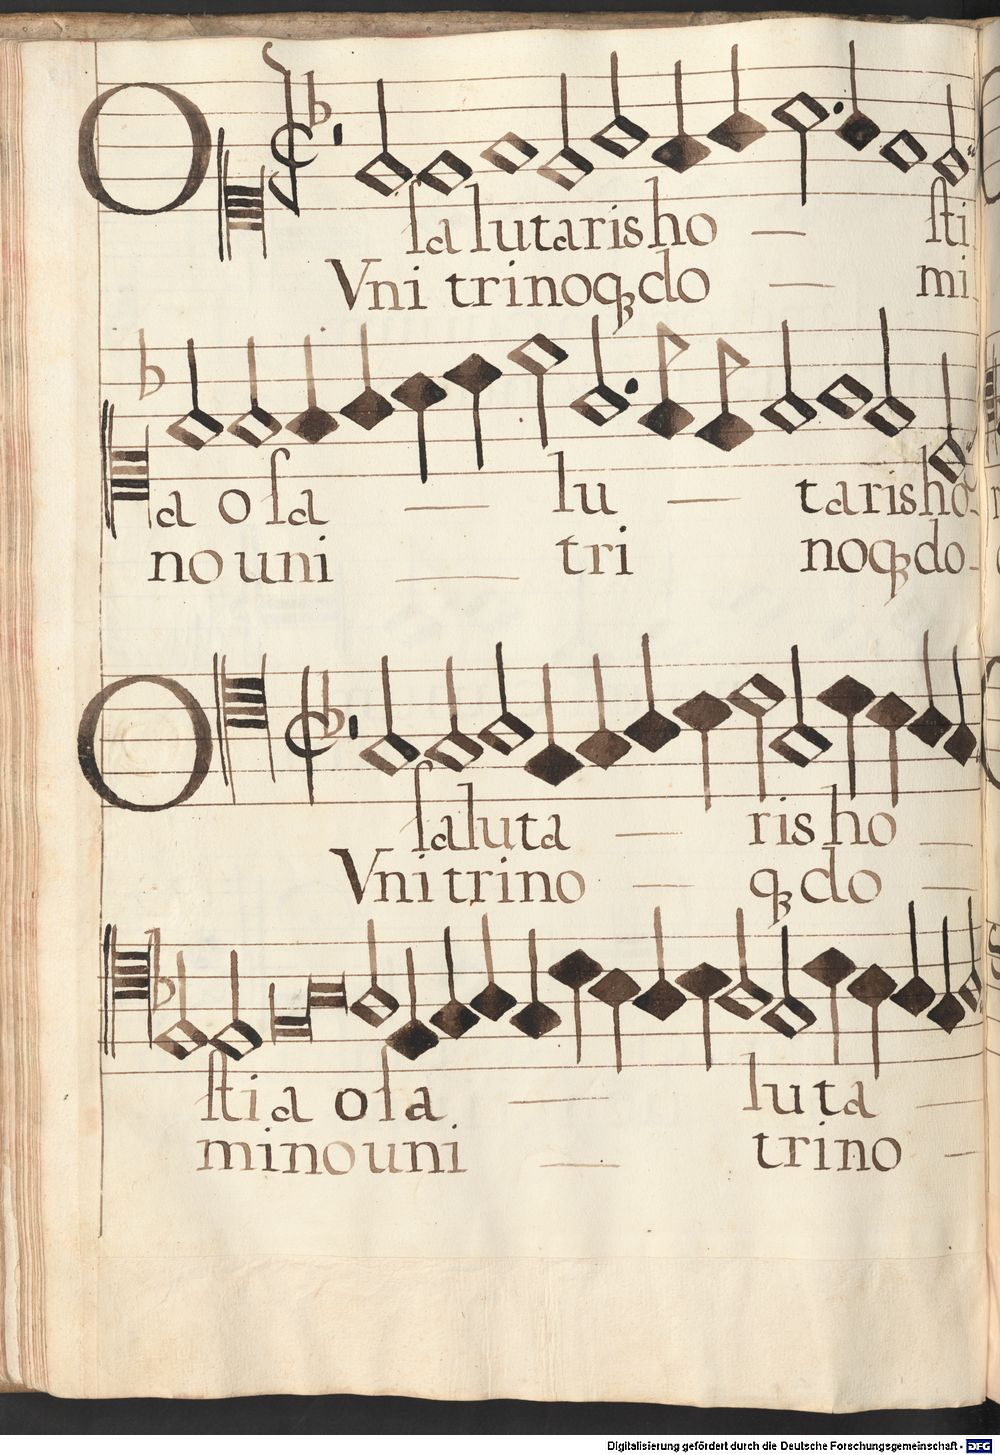 O salutaris ho — sti
Vni trinoqꝫ do — mi
a o sa — lu — taris ho-
no uni — tri noqꝫ do-
O saluta — ris ho —
Vni trino — qꝫ do —
stia o sa — luta —
mino uni — trino —
Digitalisierung gefördert durch die Deutsche Forschungsgemeinschaft - DFG